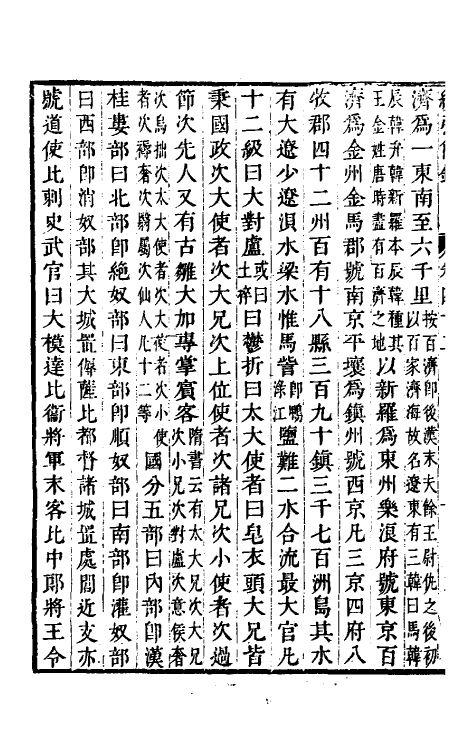 濟爲一東南至六千里按百濟卽後漢末夫餘王尉仇之後初以百家濟海故名遼東有三韓曰馬韓
辰韓弁韓新羅本辰韓種其王金姓唐時盡有百濟之地以新羅爲東州樂浪府號東京百
濟爲金州金馬郡號南京平壤爲鎮州號西京凡三京四府八
牧郡四十二州百有十八縣三百九十鎮三千七百洲島其水
有大遼少遼浿水梁水惟馬訾卽鴨淥江鹽難二水合流最大官凡
十二級曰大對盧或曰土捽曰鬱折曰太大使者曰皂衣頭大兄皆
秉國政次大使者次大兄次上位使者次諸兄次小使者次過
節次先人又有古雛大加專掌賓客隋書云有太大兄次大兄次小兄次對盧次意侯奢
次烏拙次太大使者次大使者次小使者次褥奢次翳屬次仙人凡十二等國分五部曰內部卽漢
桂婁部曰北部卽絶奴部曰東部卽順奴部曰南部卽灌奴部
曰西部卽消奴部其大城置傉薩比都督諸城置處閭近支亦
號道使比刺史武官曰大模達比衞將軍末客比中郞將王令